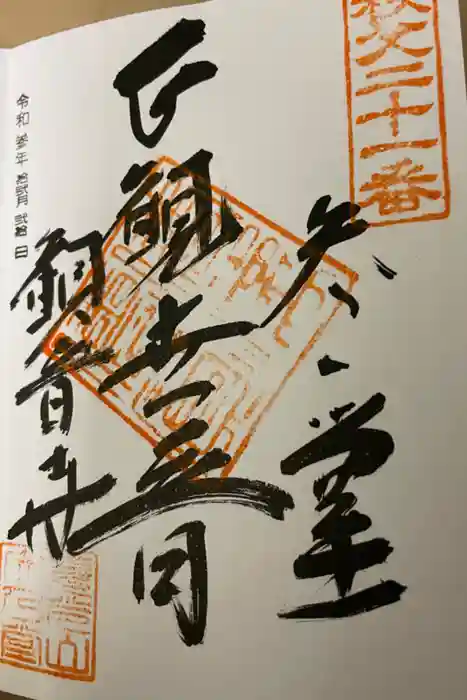 秩父二十一番
矢之堂
正観世音
観音寺
令和参年 拾弐月 弐拾 日